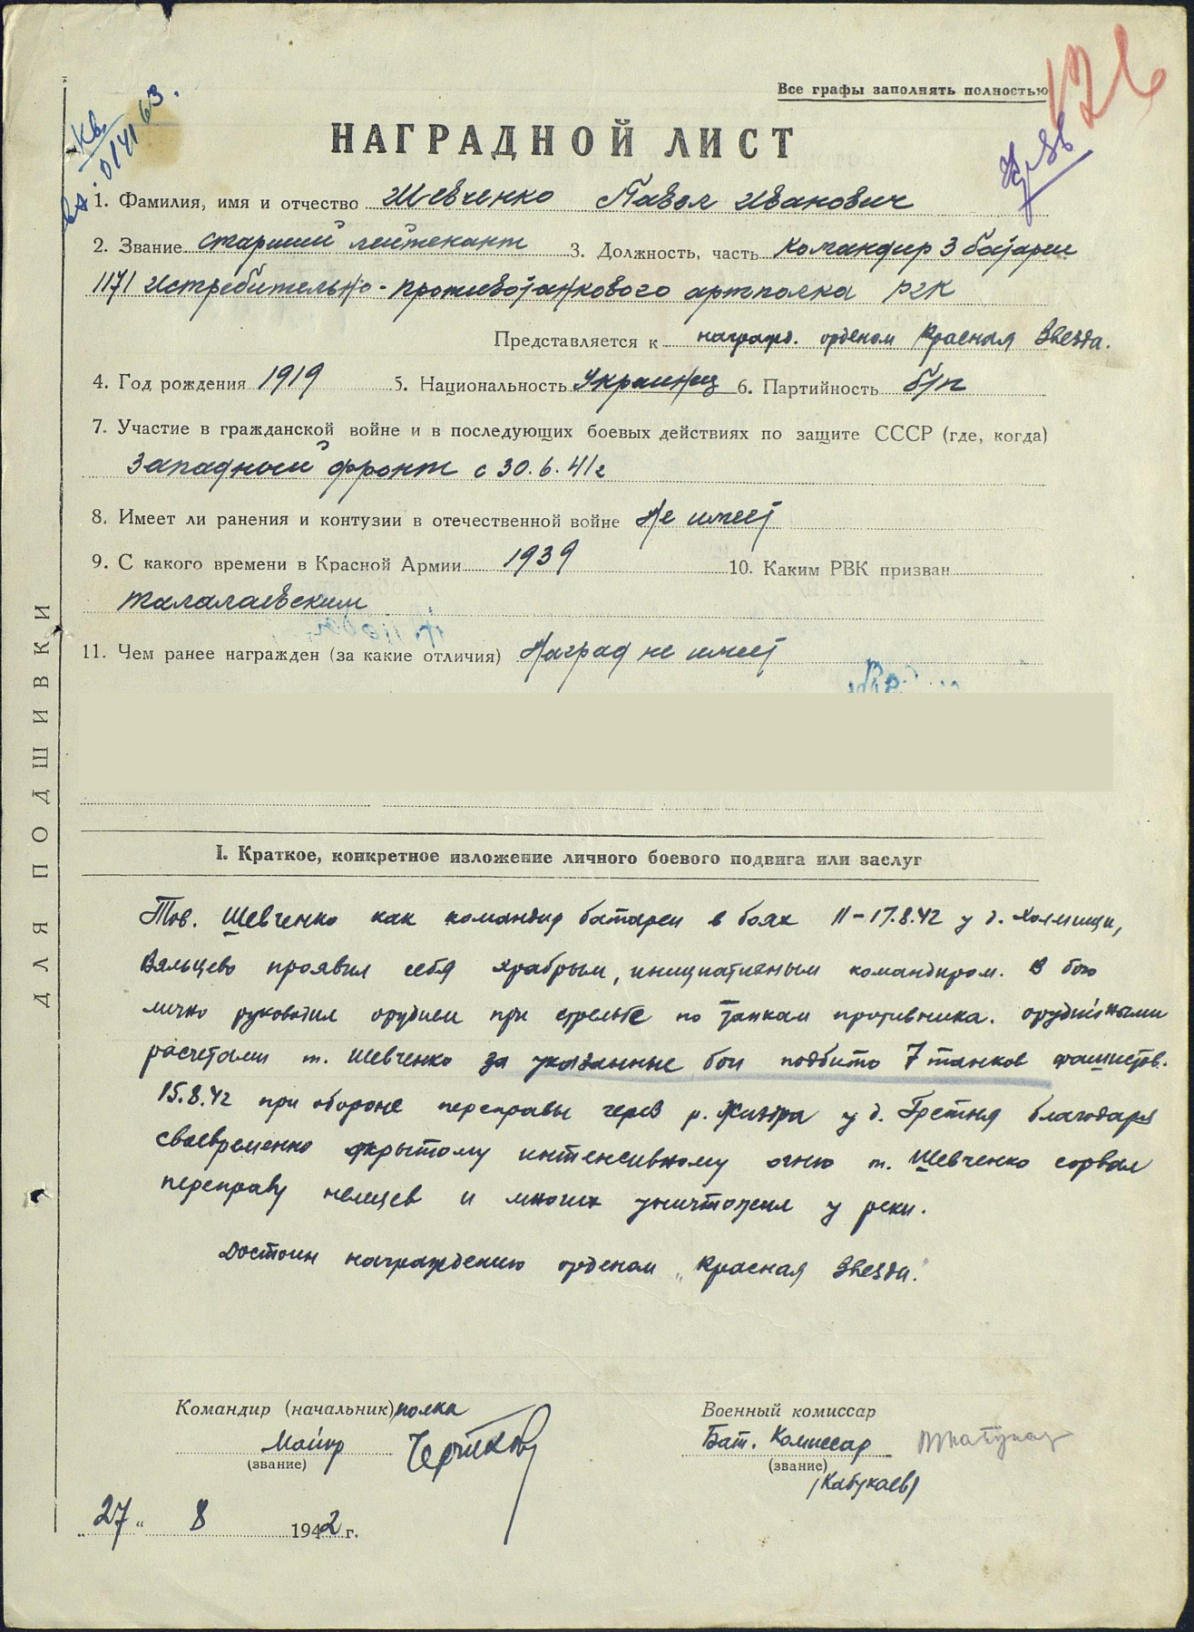 Все графы заполнять полностью
126
Кв.
014163.
НАГРАДНОЙ ЛИСТ
1. Фамилия, имя и отчество Шевченко Павел Иванович
2. Звание старший лейтенант 3. Должность, часть командир 3 батареи
1171 Истребительно-противотанкового артполка РГК
Представляется к награжд. орденом Красная Звезда.
4. Год рождения 1919 5. Национальность Украинец 6. Партийность б/п
7. Участие в гражданской войне и в последующих боевых действиях по защите СССР (где, когда)
Западный фронт с 30.6.41г
8. Имеет ли ранения и контузии в отечественной войне Не имеет
9. С какого времени в Красной Армии 1939 10. Каким РВК призван
Талалаевским
11. Чем ранее награжден (за какие отличия) Наград не имеет
I. Краткое, конкретное изложение личного боевого подвига или заслуг
Тов. Шевченко как командир батареи в боях 11-17.8.42 у д. Холмищи,
Вяльцево проявил себя храбрым, инициативным командиром. В бою
лично руководил орудием при стрельбе по танкам противника. орудийными
расчетами т. Шевченко за указанные бои подбито 7 танков фашистов.
15.8.42 при обороне переправы через р. Жиздра у д. Гретня благодаря
своевременно открытому интенсивному огню т. Шевченко сорвал
переправу немцев и многих уничтожил у реки.
Достоин награждению орденом "Красная Звезда."
Командир (начальник) полка Военный комиссар
Майор Бат. Комиссар
(звание) (звание)
(Кабукаев)
27 " 8 1942 г.
ДЛЯ ПОДШИВКИ